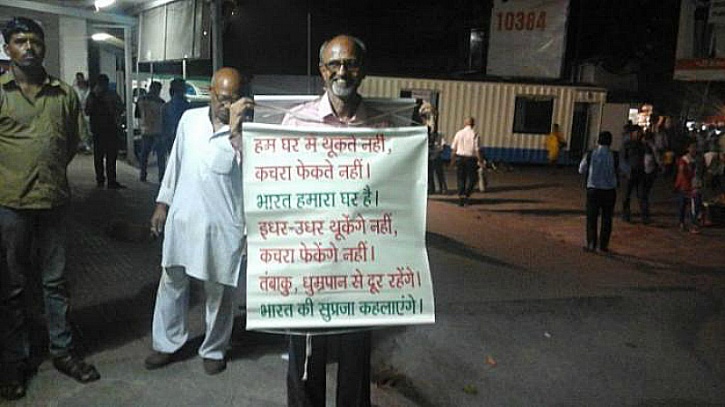 10384
हम घर म थूकते नहीं,
कचरा फेकते नहीं।
भारत हमारा घर है।
इधर-उधर थूकेंगे नहीं,
कचरा फेकेंगे नहीं।
तंबाकु, धुम्रपान से दूर रहेंगे।
भारत की सुप्रजा कहलाएंगे।